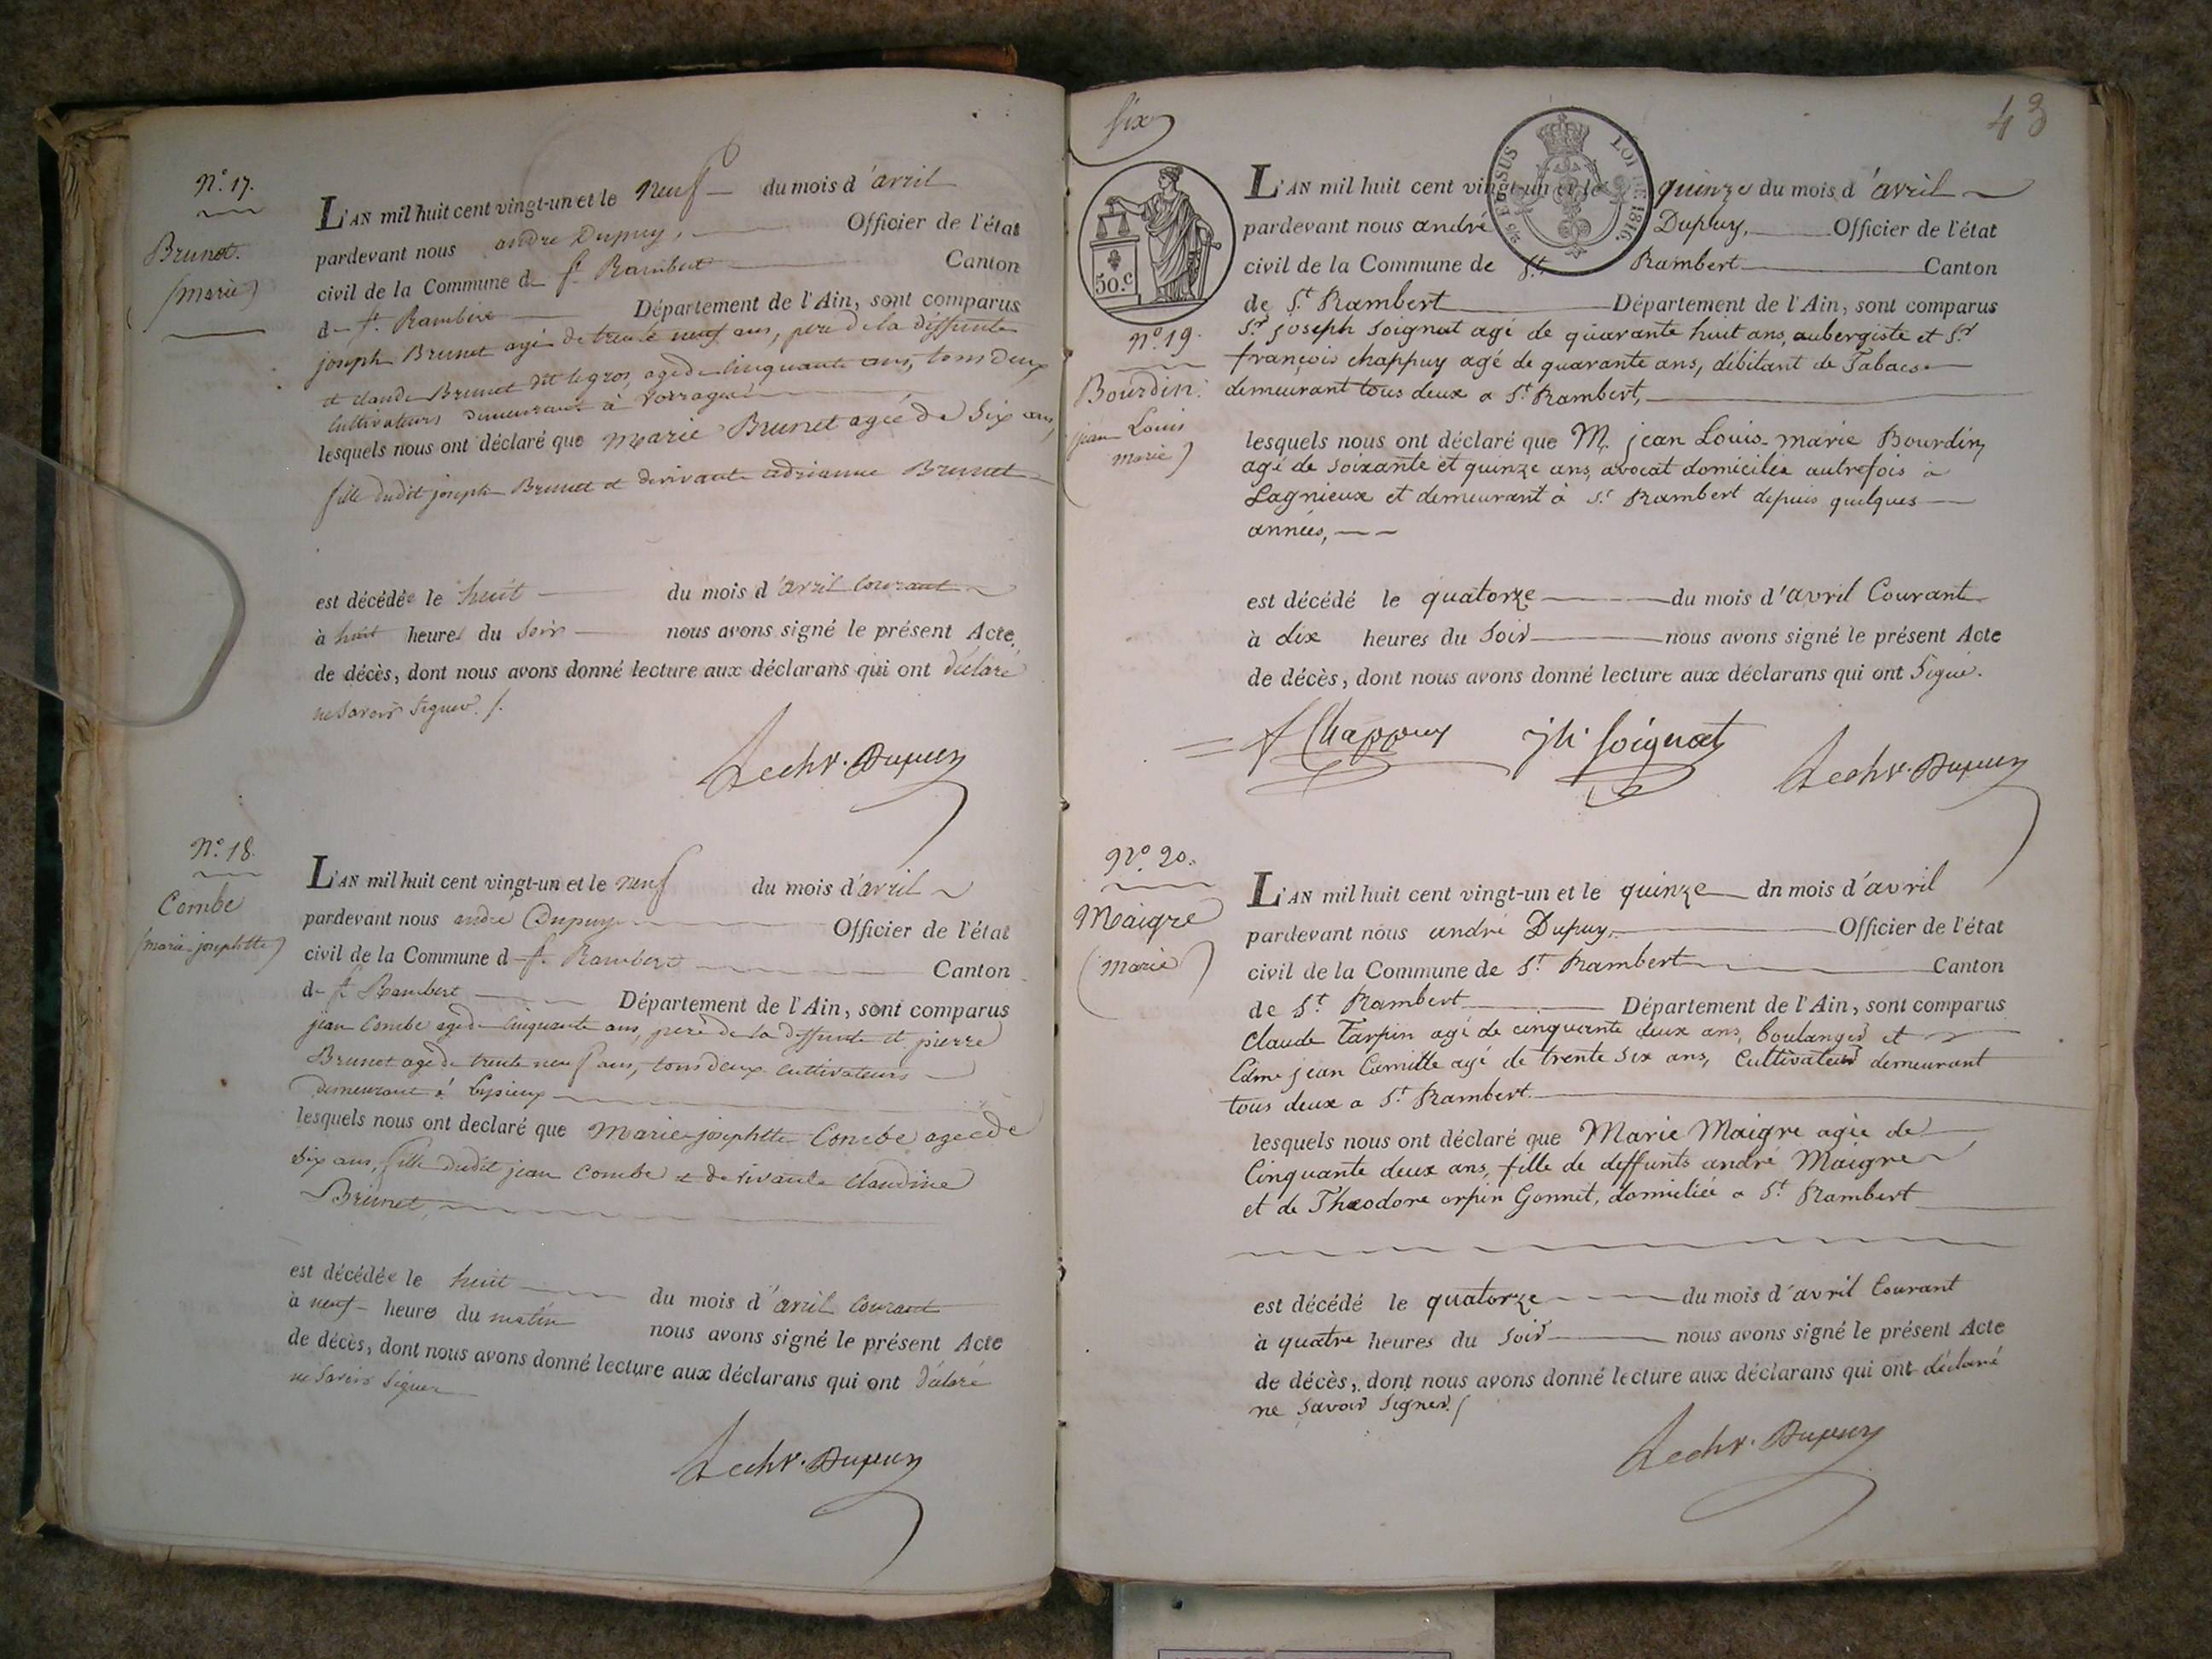 N.° 17.
Brunet.
(Marie)
L'AN mil huit cent vingt-un et le neuf du mois d'avril
pardevant nous andré Dupuy, Officier de l'état
civil de la Commune de St. Rambert Canton
de St. Rambert Département de l'Ain, sont comparus
joseph Brunet agé de trente neuf ans, pere de la deffunte
et claude Brunet dit legros, agé de cinquante ans, tous deux
cultivateurs demeurant à
lesquels nous ont déclaré que Marie Brunet agée de six ans,
fille dudit joseph Brunet et de vivante adrianne Brunet
est décédée le huit du mois d'avril courant
à huit heures du soir nous avons signé le présent Acte
de décès, dont nous avons donné lecture aux déclarans qui ont déclaré
ne savoir signer. /.
Dupuy
N.° 18.
Combe
(marie-josephtte)
L'AN mil huit cent vingt-un et le neuf du mois d'avril
pardevant nous andré Dupuy Officier de l'état
civil de la Commune de St. Rambert Canton
de St. Rambert Département de l'Ain, sont comparus
jean Combe agé de cinquante ans, pere de la deffunte et pierre
Brunet agé de trente neuf ans, tous deux cultivateurs
demeurant à
lesquels nous ont declaré que Marie-josephtte Combe agée de
six ans, fille dudit jean Combe et de vivante claudine
Brunet,
est décédée le huit du mois d'avril courant
à neuf heures du matin nous avons signé le présent Acte
de décès, dont nous avons donné lecture aux déclarans qui ont déclaré
ne savoir signer
Dupuy
six
43
50.c
25 EN SUS
LOI DE 1816.
N.° 19.
Bourdin.
(jean Louis
marie)
L'AN mil huit cent vingt-un et le quinze du mois d'avril
pardevant nous andré Dupuy, Officier de l'état
civil de la Commune de St. Rambert Canton
de St. Rambert Département de l'Ain, sont comparus
Sr. joseph Soignat agé de quarante huit ans, aubergiste et Sr
françois chappuy agé de quarante ans, débitant de Tabacs
demeurant tous deux a St. Rambert,
lesquels nous ont déclaré que M. jean Louis-marie Bourdin,
agé de soixante et quinze ans, avocat domicilié autrefois à
Lagnieux et demeurant à St. Rambert depuis quelques
années,
est décédé le quatorze du mois d'avril Courant
à dix heures du soir nous avons signé le présent Acte
de décès, dont nous avons donné lecture aux déclarans qui ont Signé.
f Chappuy jh. Soignat Dupuy
N.° 20.
Maigre
(Marie)
L'AN mil huit cent vingt-un et le quinze dn mois d'avril
pardevant nous andré Dupuy, Officier de l'état
civil de la Commune de St. Rambert Canton
de St. Rambert Département de l'Ain, sont comparus
Claude Tarpin agé de cinquante deux ans, boulanger et
Edme jean Camille agé de trente six ans, Cultivateur demeurant
tous deux a St. Rambert.
lesquels nous ont déclaré que Marie Maigre agée de
Cinquante deux ans, fille de deffunts andré Maigre
et de Theodore orpin Gonnet, domiciliée a St. Rambert
est décédé le quatorze du mois d'avril Courant
à quatre heures du soir nous avons signé le présent Acte
de décès, dont nous avons donné lecture aux déclarans qui ont déclaré
ne savoir signer. /
Dupuy